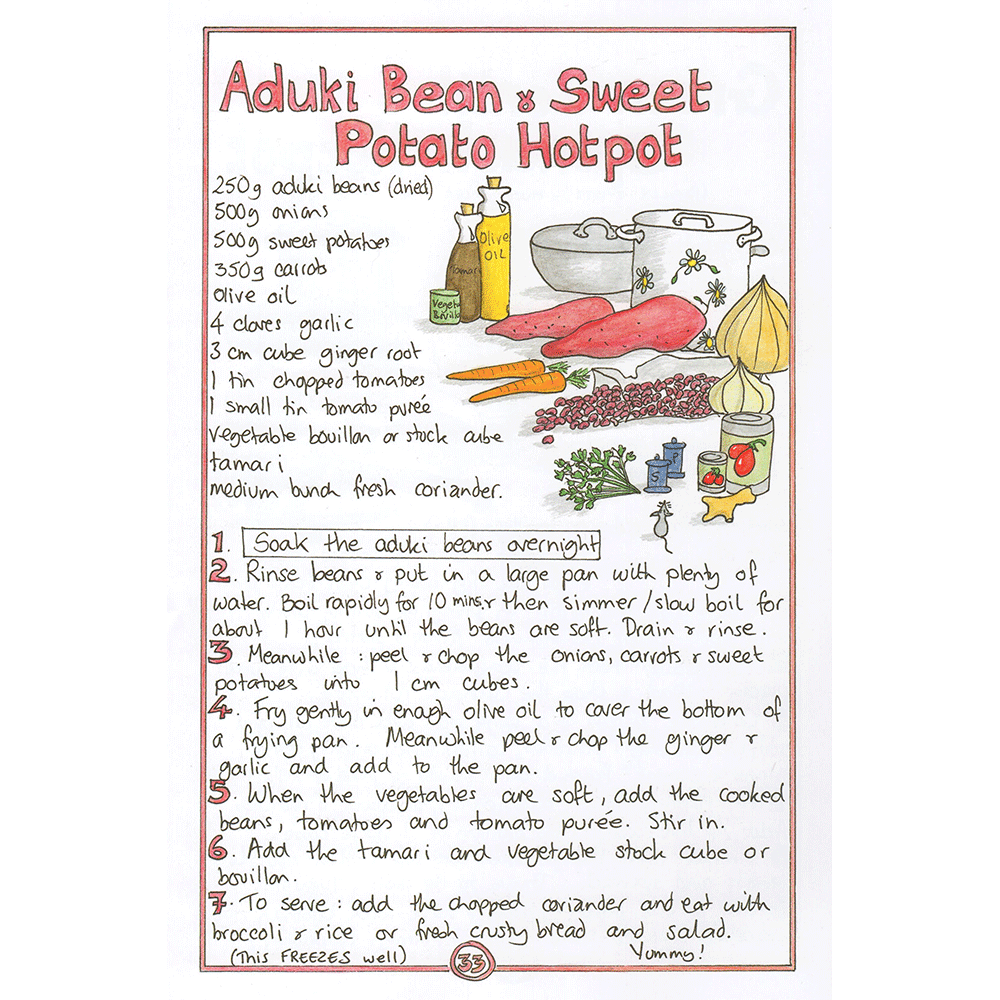 Aduki Bean & Sweet
Potato Hotpot
250g aduki beans (dried)
500g onions
500g sweet potatoes
350g carrots
olive oil
4 cloves garlic
3 cm cube ginger root
1 tin chopped tomatoes
1 small tin tomato purée
vegetable bouillon or stock cube
tamari
medium bunch fresh coriander.
Olive
OIL
Tamari
Vegeta
Bouillo
S
P
1. Soak the aduki beans overnight
2. Rinse beans & put in a large pan with plenty of
water. Boil rapidly for 10 mins, & then simmer/slow boil for
about 1 hour until the beans are soft. Drain & rinse.
3. Meanwhile : peel & chop the onions, carrots & sweet
potatoes into 1 cm cubes.
4. Fry gently in enough olive oil to cover the bottom of
a frying pan. Meanwhile peel & chop the ginger &
garlic and add to the pan.
5. When the vegetables are soft, add the cooked
beans, tomatoes and tomato purée. Stir in.
6. Add the tamari and vegetable stock cube or
bouillon.
7. To serve : add the chopped coriander and eat with
broccoli & rice or fresh crusty bread and salad.
(This FREEZES well)
Yummy!
33